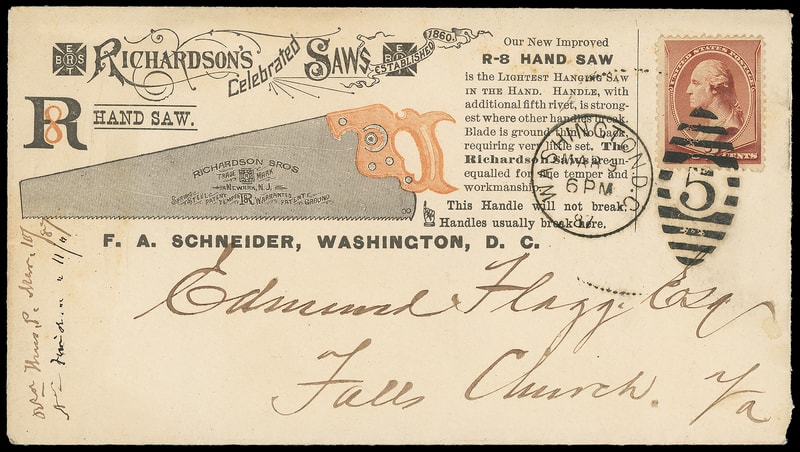 RICHARDSON'S Celebrated SAWS.
ESTABLISHED 1860.
R8 HAND SAW.
RICHARDSON BRO'S
TRADE MARK
NEWARK, N.J.
R
Our New Improved
R-8 HAND SAW
is the LIGHTEST HANGING SAW
IN THE HAND. HANDLE, with
additional fifth rivet, is strong-
est where other handles break.
Blade is ground thin to back,
requiring very little set. The
Richardson Saws are un-
equalled for fine temper and
workmanship.
This Handle will not break.
Handles usually break here.
F. A. SCHNEIDER, WASHINGTON, D. C.
UNITED STATES POSTAGE
CENTS
WASHINGTON, D.C.
MAR
6 PM
87
5
Edmund Flagg. Esq
Falls Church. Va